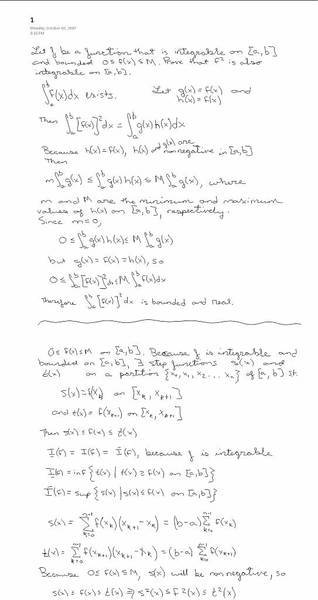 1
Let f be a function that is integrable on [a,b]
and bounded 0 ≤ f(x) ≤ M. Prove that f² is also
integrable on [a,b].
∫_a^b f(x)dx exists. Let g(x) = f(x) and
h(x) = f(x)
Then ∫_a^b [f(x)]² dx = ∫_a^b g(x)h(x)dx
Because h(x) = f(x), h(x) and g(x) are nonnegative in [a,b]
Then
m∫_a^b g(x) ≤ ∫_a^b g(x)h(x) ≤ M∫_a^b g(x), where
m and M are the minimum and maximum
values of h(x) on [a,b], respectively.
Since m = 0,
0 ≤ ∫_a^b g(x)h(x) ≤ M ∫_a^b g(x)
but g(x) = f(x) = h(x), so
0 ≤ ∫_a^b [f(x)]² dx ≤ M ∫_a^b f(x)dx
Therefore ∫_a^b [f(x)]² dx is bounded and real.
0 ≤ f(x) ≤ M on [a,b]. Because f is integrable and
bounded on [a,b], ∃ step functions s(x) and
t(x) on a partition {x₀, x₁, x₂ ... xₙ} of [a,b] st.
s(x) = f(xₖ) on [xₖ, xₖ₊₁]
and t(x) = f(xₖ₊₁) on [xₖ, xₖ₊₁]
Then s(x) ≤ f(x) ≤ t(x)
I(f) = I(f) = Ī(f), because f is integrable
I(f) = inf{t(x) | t(x) ≥ f(x) on [a,b]}
Ī(f) = sup{s(x) | s(x) ≤ f(x) on [a,b]}
s(x) = Σ_{k=0}^{n-1} f(xₖ)(xₖ₊₁ - xₖ) = (b-a) Σ_{k=0}^{n-1} f(xₖ)
t(x) = Σ_{k=0}^{n-1} f(xₖ₊₁)(xₖ₊₁ - xₖ) = (b-a) Σ_{k=0}^{n-1} f(xₖ₊₁)
Because 0 ≤ f(x) ≤ M, s(x) will be nonnegative, so
s(x) ≤ f(x) ≤ t(x) ⇒ s²(x) ≤ f²(x) ≤ t²(x)